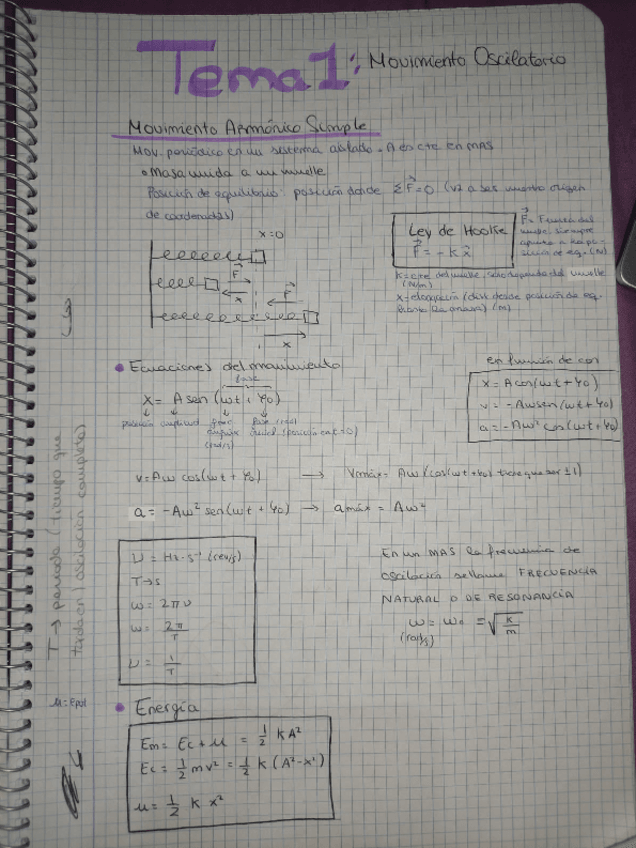 Tema 1: Movimiento Oscilatorio
Movimiento Armónico Simple
Mov. periódico en un sistema aislado. A es cte en MAS
• Masa unida a un muelle
Posición de equilibrio: posición donde Σ F⃗ = 0 (va a ser nuestro origen
de coordenadas)
x=0
F⃗
F⃗
x
Ley de Hooke
F⃗ = - K x⃗
F⃗ = Fuerza del
muelle, siempre
apunta a la po-
sición de eq. (N)
K = cte del muelle, solo depende del muelle
(N/m)
x = elongación (dist. desde posición de eq.
hasta la masa) (m)
• Ecuaciones del movimiento
fase
x = A sen (ωt + φ0)
posición amplitud
(rad/s)
fase (rad)
inicial (posición en t=0)
en función de cos
x = A cos(ωt + φ0)
v = -Aω sen(ωt + φ0)
a = -Aω² cos(ωt + φ0)
v = Aω cos(ωt + φ0) → vmáx = Aω (cos(ωt+φ0) tiene que ser ±1)
a = -Aω² sen(ωt + φ0) → amáx = Aω²
ν = Hz · s⁻¹ (rev/s)
T → s
ω = 2πν
ω = 2π/T
ν = 1/T
En un MAS la frecuencia de
oscilación se llama FRECUENCIA
NATURAL O DE RESONANCIA
ω = ω0 = √(K/m)
(rad/s)
T → periodo (tiempo que
tarda en 1 oscilación completa)
μ = Epot
• Energía
Em = Ec + μ = 1/2 K A²
Ec = 1/2 m v² = 1/2 K (A² - x²)
μ = 1/2 K x²